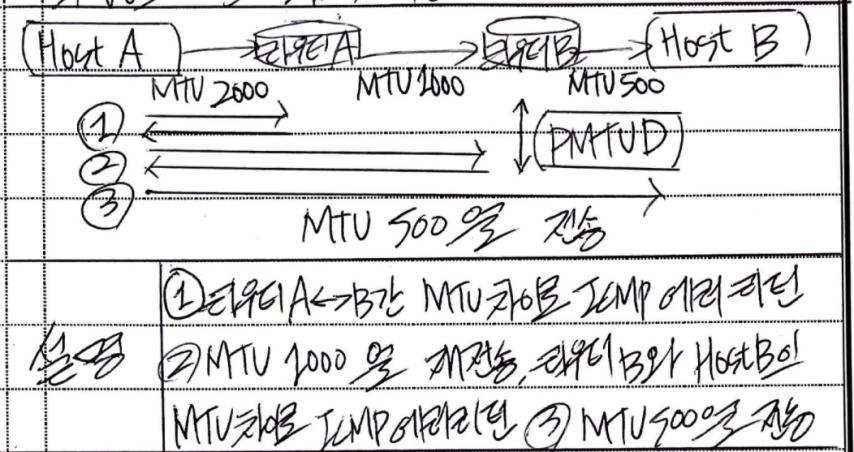 Host A 라우터A 라우터B Host B
MTU 2000 MTU 1000 MTU 500
①
② PMTUD
③
MTU 500으로 전송
①라우터A↔B간 MTU차이로 ICMP 에러리턴
설명 ②MTU 1000으로 재전송, 라우터B와 HostB의
MTU차이로 ICMP에러리턴 ③ MTU500으로 전송